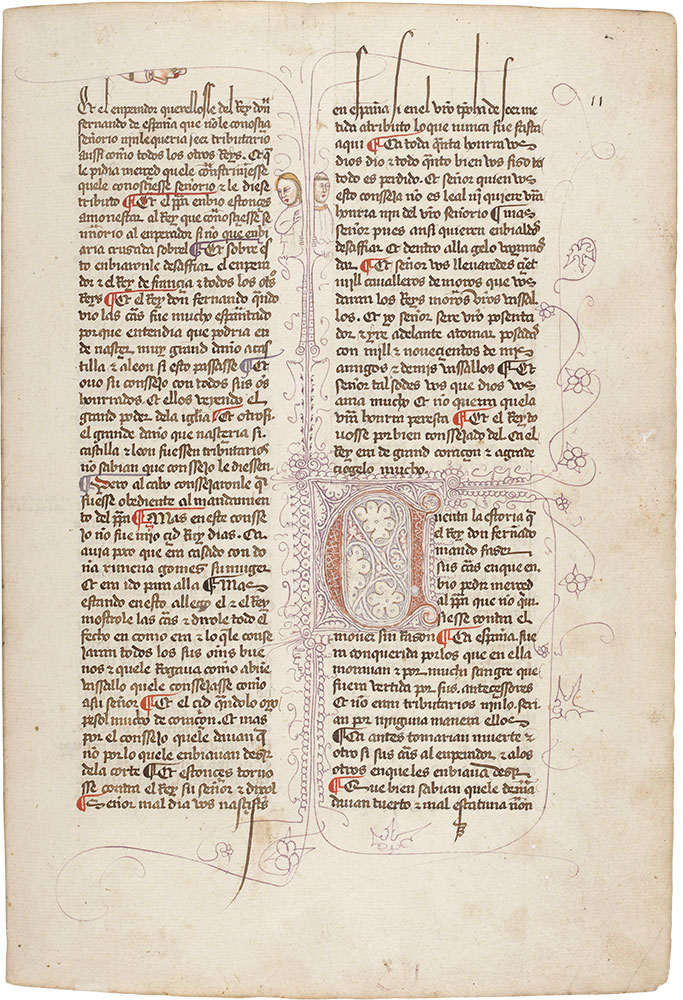 Et el enperador querellosse del Rey don
fernando de españa que nole conosçia
señorio ninle queria seer tributario
aussi commo todos los otros Reys. Et q̃
le pidia merçed quele costriniesse
quele conosçiesse señorio ⁊ le diese
tributo ¶ Et el pp̃a enbio estonçes
amonestar al Rey que conosçiesse se
ñiorio al enperador si no que enbi
aria crusada sobrel ¶ Et sobre q̃s
to enbiaronle desaffiar. el enpera
dor ⁊ el Rey de françia ⁊ todos los ot̃s
Reys ¶ Et el Rey don fernando quãdo
vio las cãs fue mucho espantado
porque entendia que podria en
de nasçer muy grand daño acas
tilla ⁊ aleon si esto passasse ¶ Et
ouo su conssejo con todos sus oẽs
honrrados. Et ellos veyendo el
grand poder dela iglia ¶ Et otrosi
el grande daño que nasçeria si
castilla ⁊ leon fuessen tributarios
nõ sabian que conssejo le diessen
¶ Pero al cabo conssejaronle q̃
fuesse obediente al mandamien
to del pp̃a ¶ Mas en este consse
jo nõ fue mjo çid Ruy dias. Ca
auia poco que era casado con do
ña ximena gomes su muger
Et era ido para alla ¶ Mas
estando en esto allego el ⁊ el Rey
mostrole las cãs ⁊ dixole todo el
fecho en commo era ⁊ lo q̃le conse
jaran todos los sus om̃s bue
nos ⁊ quele Rogaua commo abuẽ
vassallo quele conssejasse commo
asu señor ¶ Et el çid quãdolo oyo
pesol mucho de coraçon. Et mas
por el conssejo quele dauan q̃
no por lo quele enbiauan desir
dela corte ¶ Et estonçes torno
sse contra el Rey su señor ⁊ dixol
¶ Señor mal dia vos nasçistes
11
en españa si en el vr̃o tp̃o ha de seer me
tida atributo lo que nunca fue fasta
aqui ¶ Ca toda quãta honrra vos
dios dio ⁊ todo quãto bien vos fiso ta
todo es perdido. Et señor quien vos
esto conseja no es leal nj quiere vr̃a
honrra nin del vr̃o señorio ¶ Mas
señor pues ansi quieren enbialdes
desaffiar. Et dentro alla gelo vayamos
dar ¶ Et señor vos lleuaredes çĩco
mill caualleros de moros que vos
daran los Reys moros vr̃os vassal
los. Et yo señor sere vr̃o posenta
dor ⁊ yre adelante atomar posadas
con mill ⁊ noueçiendos de mis
amigos ⁊ de mis vassallos ¶ Et
señor tal sodes vos que dios vos
ama mucho Et nõ querra quela
vr̃a honrra peresca ¶ Et el Rey to
uosse por bien conssejado del. Ca el
Rey era de grand coraçon ⁊ agrade
çiogelo mucho.
Cuenta la estoria q̃
el Rey don fernãdo
mando faser
sus cãs en que en
bio pedir merçed
al pp̃a que nõ qui
siesse contra el
mouer sin rason ¶ Ca españa fue
ra conquerida por los que en ella
morauan ⁊ por mucha sangre que
fuera vertida por sus anteçessores
Et nõ eran tributarios nin lo seri
an por ninguna manera ellos
¶ Ca antes tomarian muerte ⁊
otro si sus cãs al enperador ⁊ alos
otros en que les enbiaua desir
¶ Que bien sabian quele demã
dauan tuerto ⁊ mal estança non